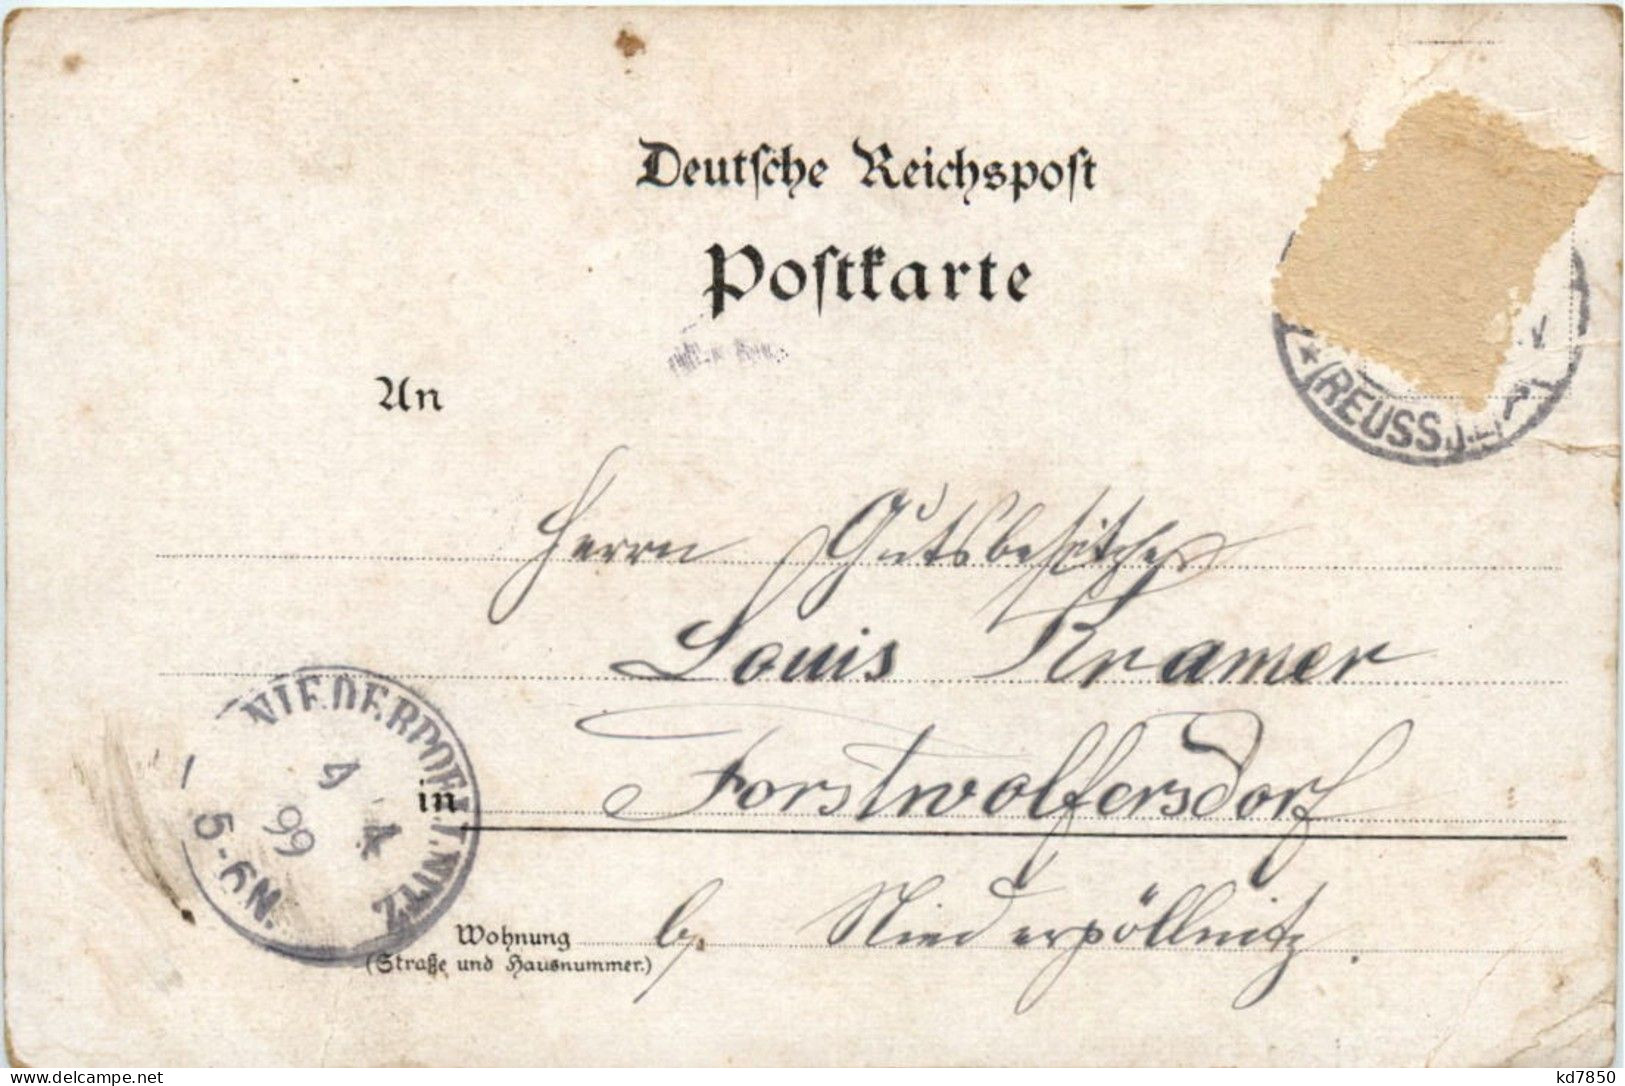 Deutsche Reichspost
Postkarte
An
* (REUSS J.L.)
Herrn Gutsbesitzer
Louis Kramer
in Forstwolfersdorf
Wohnung b. Niederpöllnitz.
(Straße und Hausnummer.)
NIEDERPOELLNITZ
4 4
99
5-6 N.
delcampe.net
kd7850